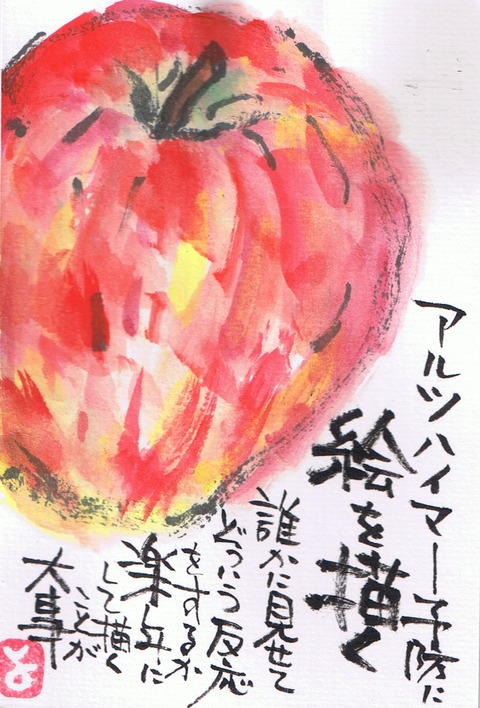 アルツハイマー予防に
絵を描く
誰かに見せて
どういう反応
をするか
楽しみに
して描く
ことが
大事